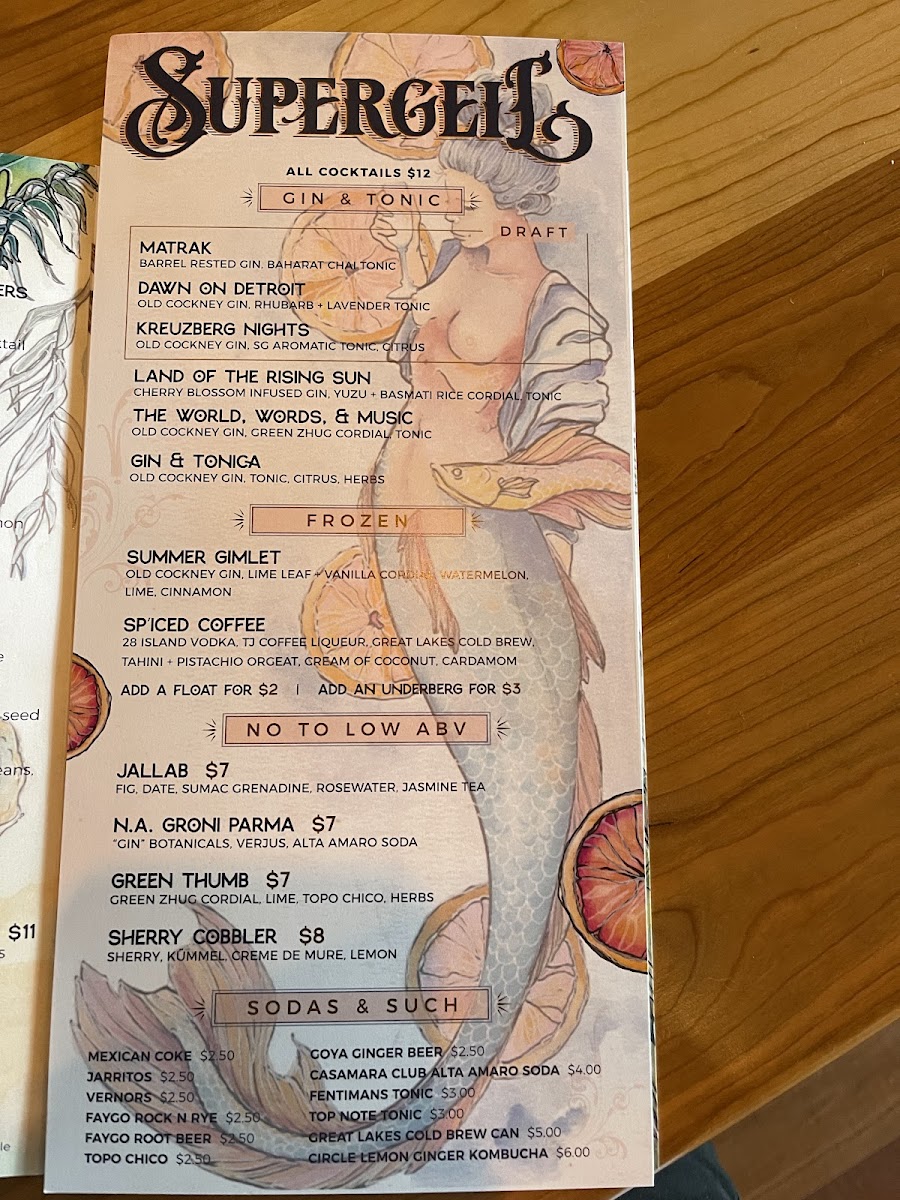 SUPERGEIL
ALL COCKTAILS $12
GIN & TONIC
DRAFT
MATRAK
BARREL RESTED GIN, BAHARAT CHAI TONIC
DAWN ON DETROIT
OLD COCKNEY GIN, RHUBARB + LAVENDER TONIC
KREUZBERG NIGHTS
OLD COCKNEY GIN, SG AROMATIC TONIC, CITRUS
LAND OF THE RISING SUN
CHERRY BLOSSOM INFUSED GIN, YUZU + BASMATI RICE CORDIAL, TONIC
THE WORLD, WORDS, & MUSIC
OLD COCKNEY GIN, GREEN ZHUG CORDIAL, TONIC
GIN & TONICA
OLD COCKNEY GIN, TONIC, CITRUS, HERBS
FROZEN
SUMMER GIMLET
OLD COCKNEY GIN, LIME LEAF + VANILLA CORDIAL, WATERMELON,
LIME, CINNAMON
SP'ICED COFFEE
28 ISLAND VODKA, TJ COFFEE LIQUEUR, GREAT LAKES COLD BREW,
TAHINI + PISTACHIO ORGEAT, CREAM OF COCONUT, CARDAMOM
ADD A FLOAT FOR $2 | ADD AN UNDERBERG FOR $3
NO TO LOW ABV
JALLAB $7
FIG, DATE, SUMAC GRENADINE, ROSEWATER, JASMINE TEA
N.A. GRONI PARMA $7
"GIN" BOTANICALS, VERJUS, ALTA AMARO SODA
GREEN THUMB $7
GREEN ZHUG CORDIAL, LIME, TOPO CHICO, HERBS
SHERRY COBBLER $8
SHERRY, KÜMMEL, CREME DE MURE, LEMON
SODAS & SUCH
MEXICAN COKE $2.50
JARRITOS $2.50
VERNORS $2.50
FAYGO ROCK N RYE $2.50
FAYGO ROOT BEER $2.50
TOPO CHICO $2.50
GOYA GINGER BEER $2.50
CASAMARA CLUB ALTA AMARO SODA $4.00
FENTIMANS TONIC $3.00
TOP NOTE TONIC $3.00
GREAT LAKES COLD BREW CAN $5.00
CIRCLE LEMON GINGER KOMBUCHA $6.00
seed
$11